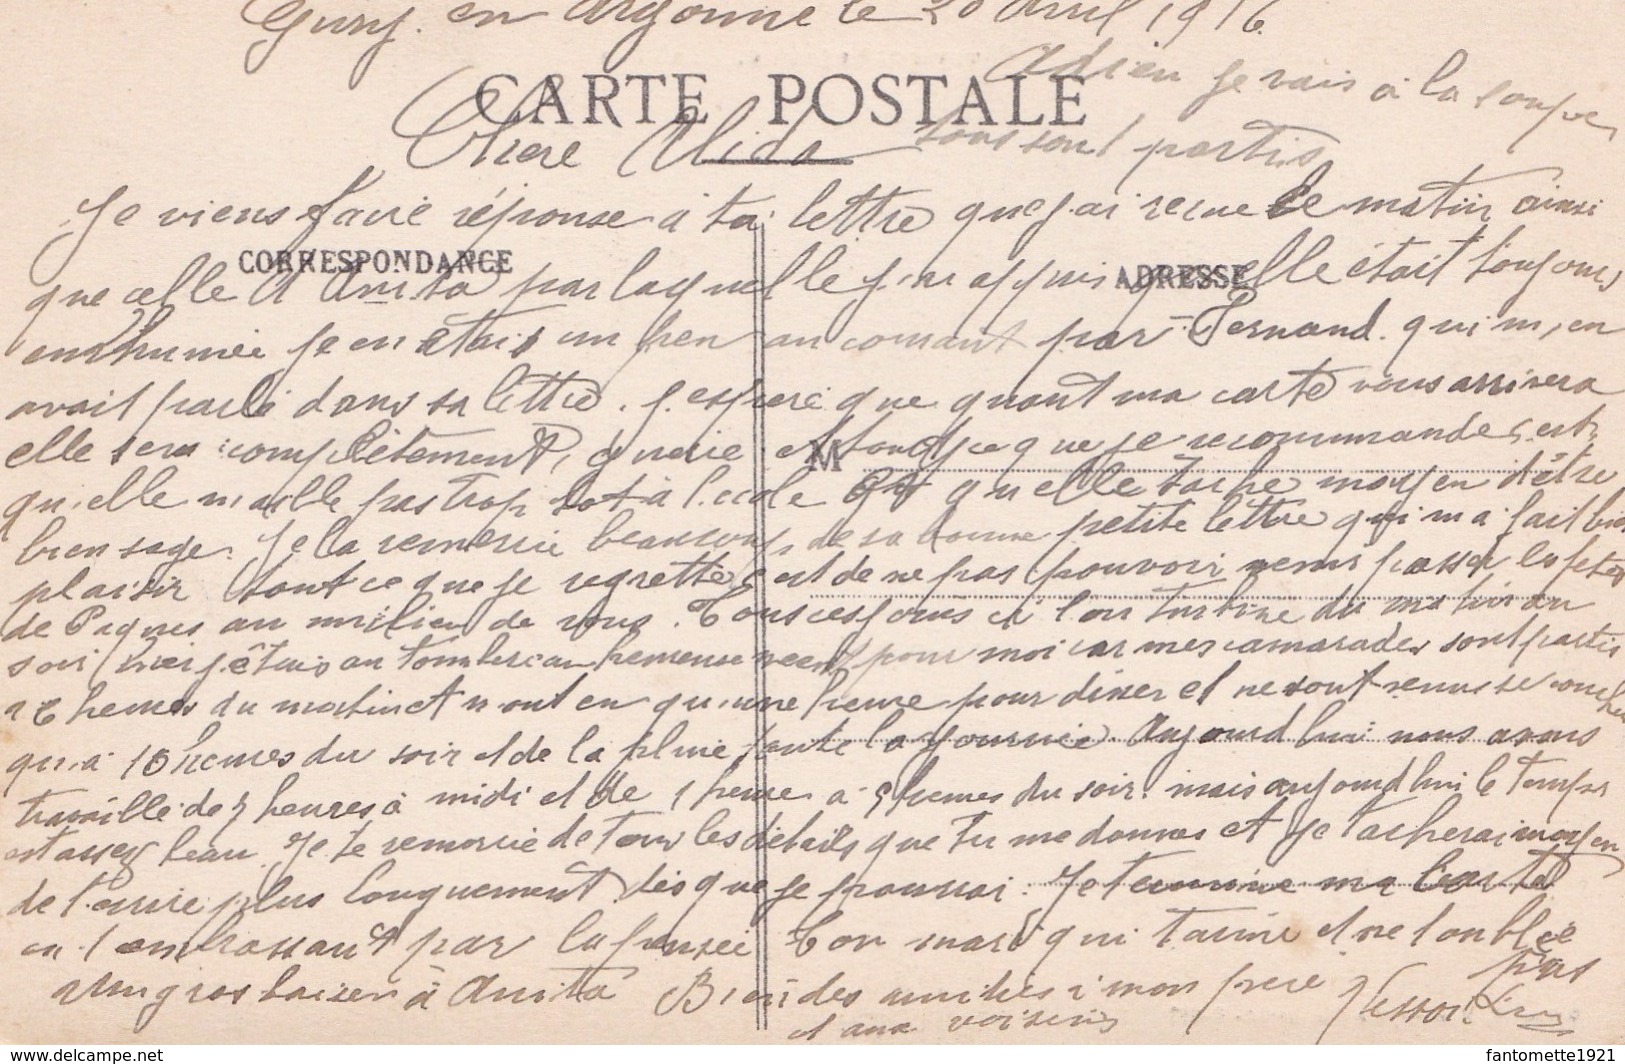 Givry. en Argonne le 20 Avril 1916
CARTE POSTALE
Adieu je vais à la soupe,
tous sont partis
Chere Alida
Je viens faire réponse à ta lettre que j'ai recue ce matin ainsi
CORRESPONDANCE
ADRESSE
que celle d Anita par laquelle j'ai appris qu'elle était toujours
enrhumée je en étais un peu au courant par Fernand. qui m,en
avait parlé dans sa lettre. J,espere que quant ma carte vous arrivera
elle sera complètement, guerie et tout ce que je recommande c,est
M
qu,elle n'aille pas trop tot à l.ecole et qu elle tache moyen d'être
bien sage. Je la remercie beaucoup de sa bonne petite lettre qui m a fait bien
plaisir tout ce que je regrette c,est de ne pas pouvoir venir passer les fetes
de Paques au milieu de vous. Tous ces jours ci l'on turbine du matin au
soir hier j,étais au tombereau heureusement pour moi car mes camarades sont partis
a heures du matin et n ont eu qu,une heure pour diner et ne sont renus se coucher
qu,a 10 heures du soir et de la pluie toute la journée. Aujourd hui nous avons
travaillé de 7 heures à midi et de 1 heure a 5 heures du soir. mais aujourd hui le temps
est assez beau. Je te remercie de tous les détails que tu me donnes et je tacherai moyen
de t.ecrire plus longuement dès que je pourrai. Je termine ma carte
en t embrassant par la pensée Ton mari qui t'aime et ne t oublie
pas
Un gros baiser à Anita Bien des amitiés a mon frere
et aux voisins
fantomette1921